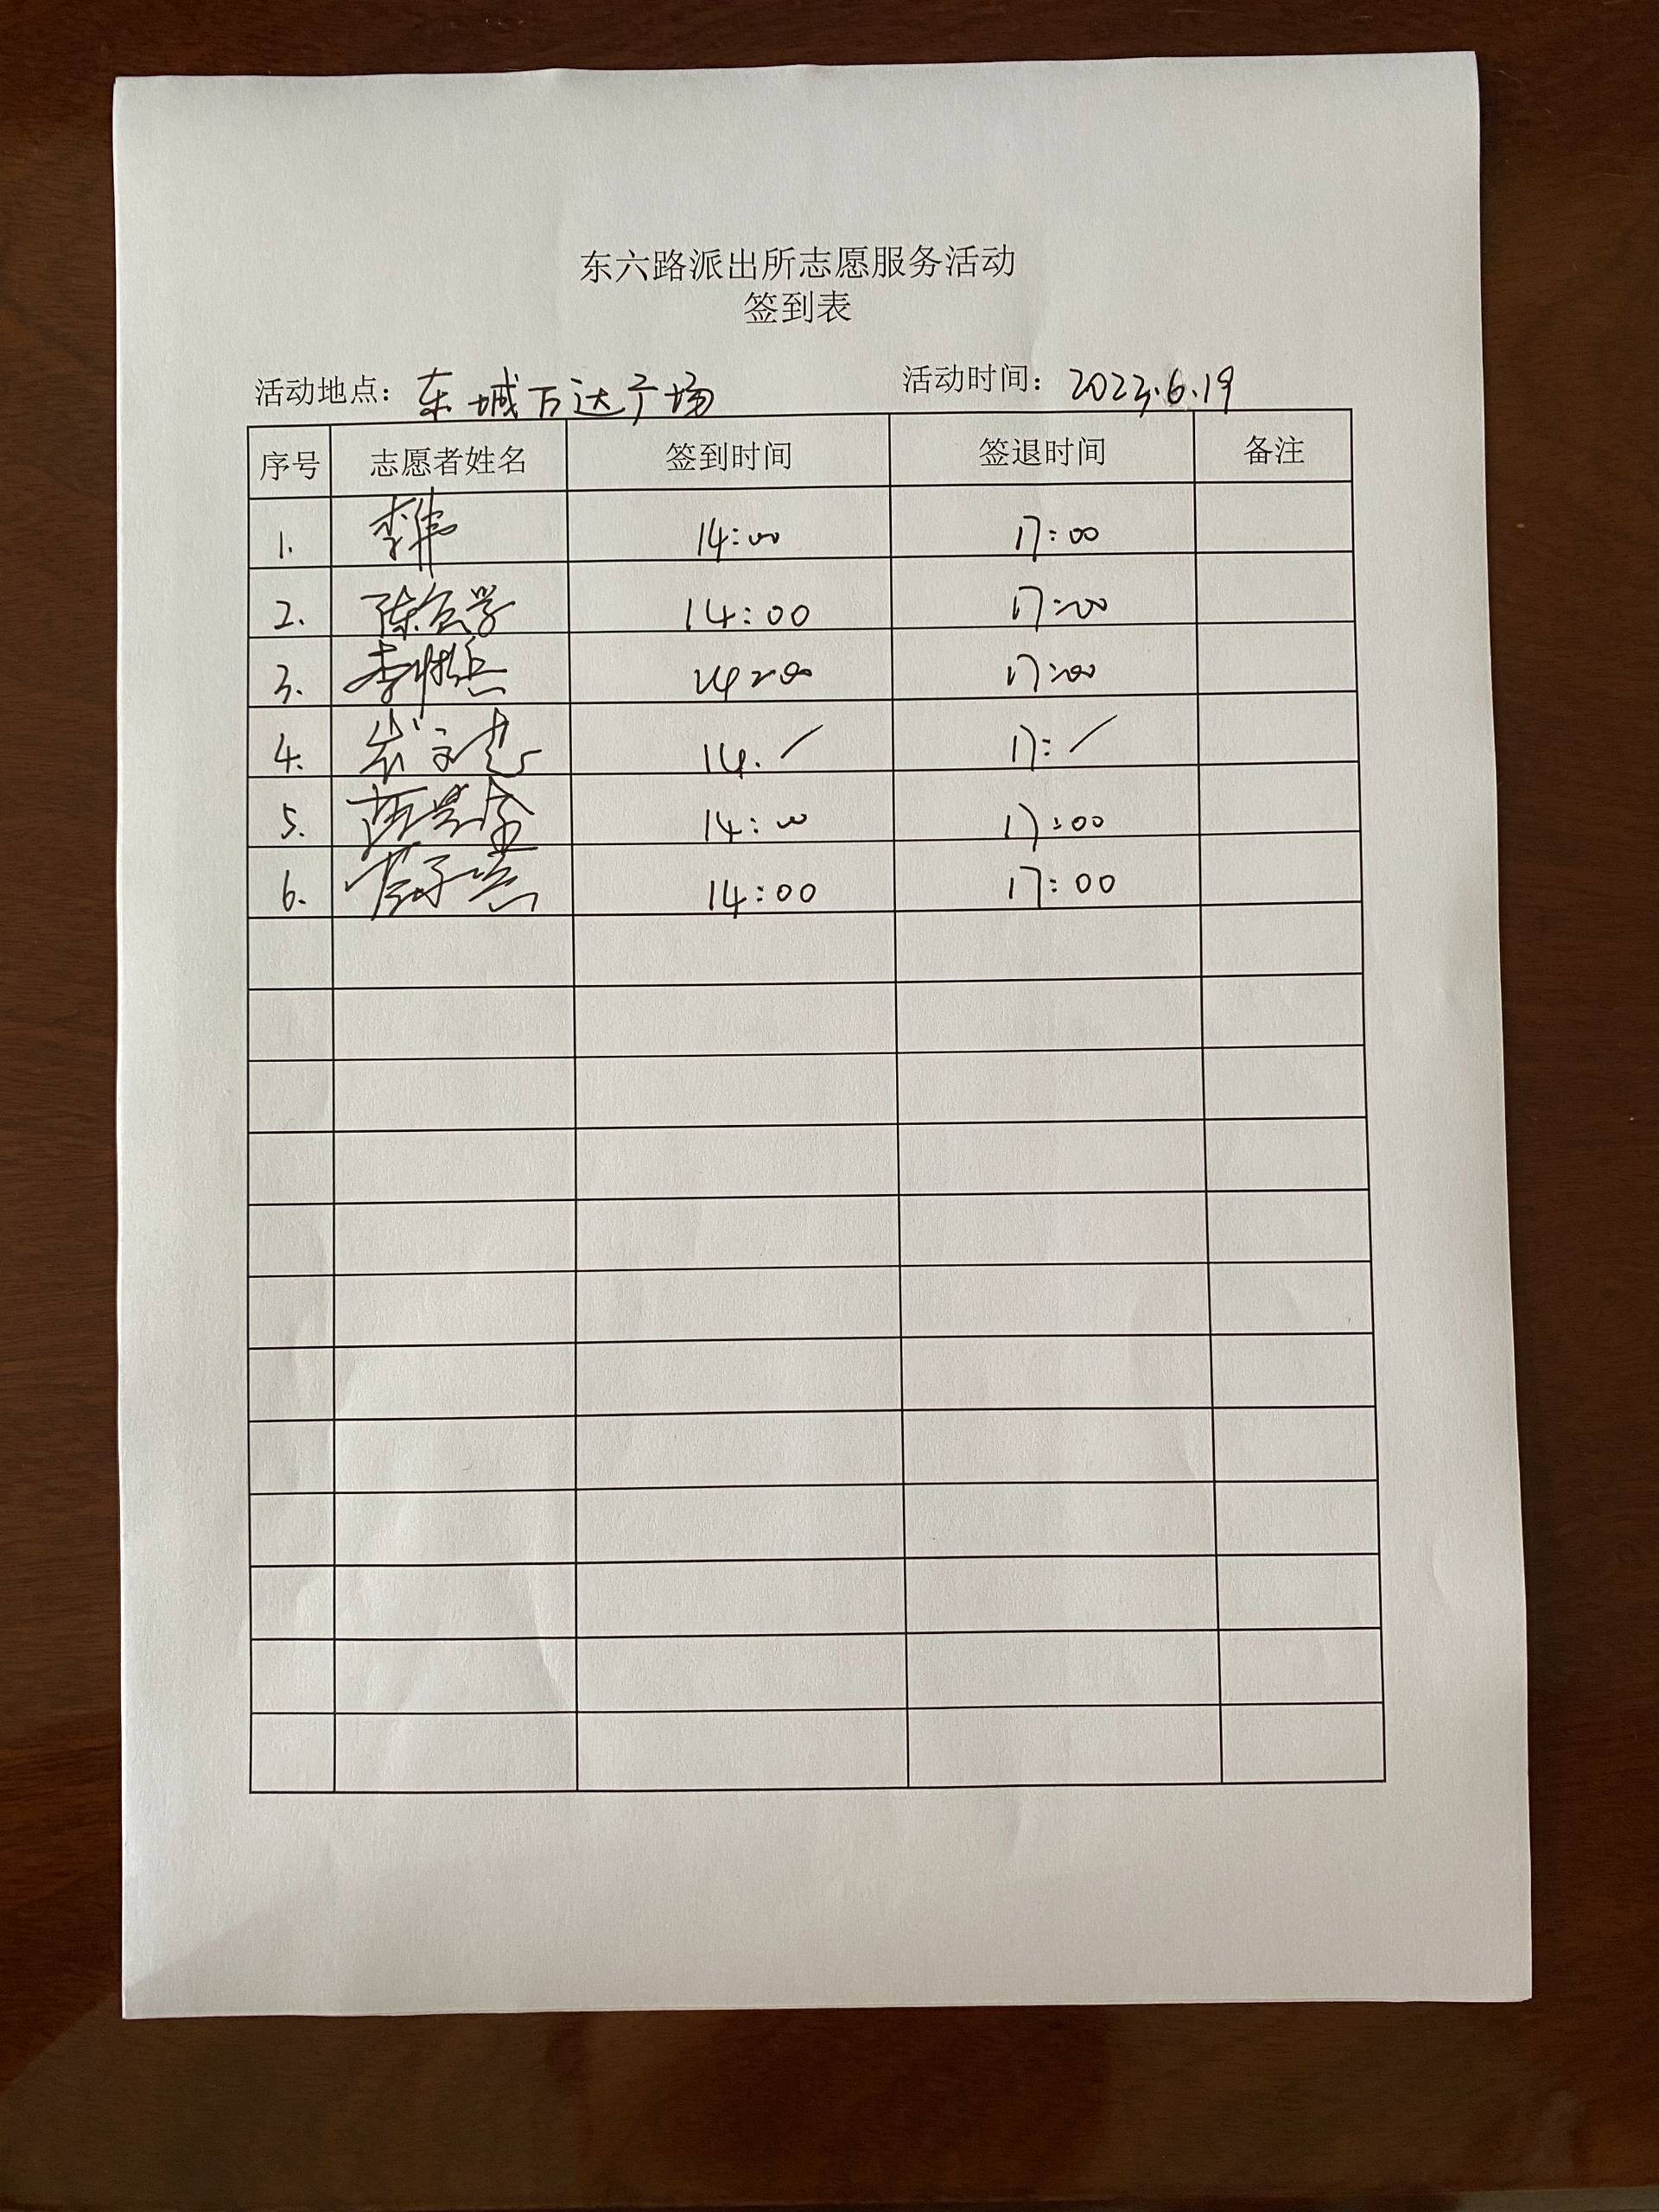 东六路派出所志愿服务活动
签到表
活动地点：东城万达广场 活动时间：2023.6.19
序号 志愿者姓名 签到时间 签退时间 备注
1. 李伟 14:00 17:00
2. 陈 学 14:00 17:00
3. 李 14:00 17:00
4. 崔文志 14. / 17: /
5. 14:00 17:00
6. 14:00 17:00